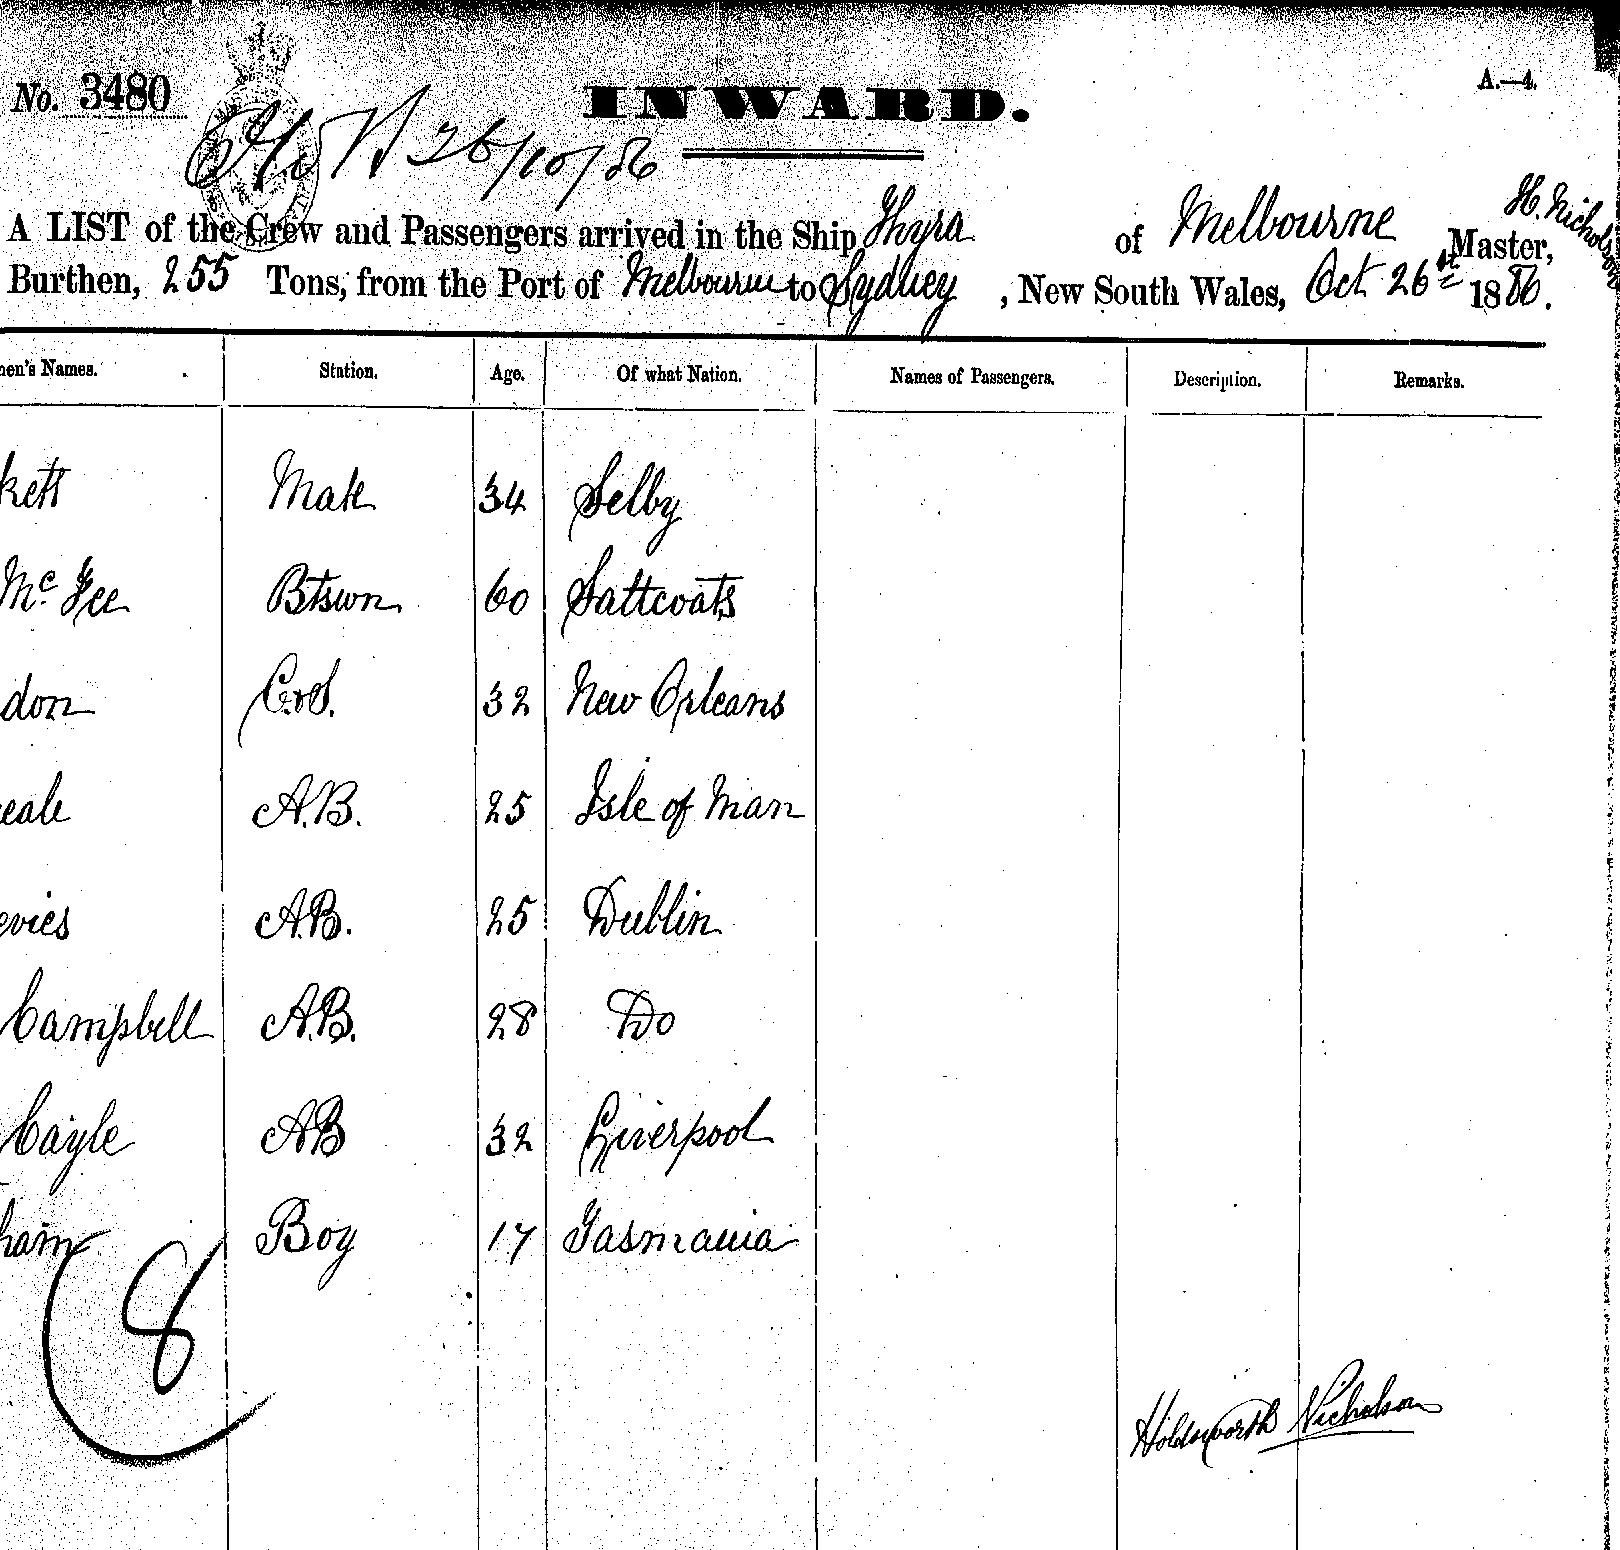 No. 3480
INWARD.
A.—4.
26/10/86
H. Nicholson
A LIST of the Crew and Passengers arrived in the Ship Thyra of Melbourne Master,
Burthen, 255 Tons, from the Port of Melbourne to Sydney, New South Wales, Oct 26th 1886.
men's Names. Station. Age. Of what Nation. Names of Passengers. Description. Remarks.
kett Mate 34 Selby
Mc Gee Btswn 60 Saltcoats
don C&S. 32 New Orleans
eale A.B. 25 Isle of Man
evies A.B. 25 Dublin
Campbell A.B. 28 Do
Cayle AB 32 Liverpool
ham Boy 17 Tasmania
8
Holdsworth Nicholson